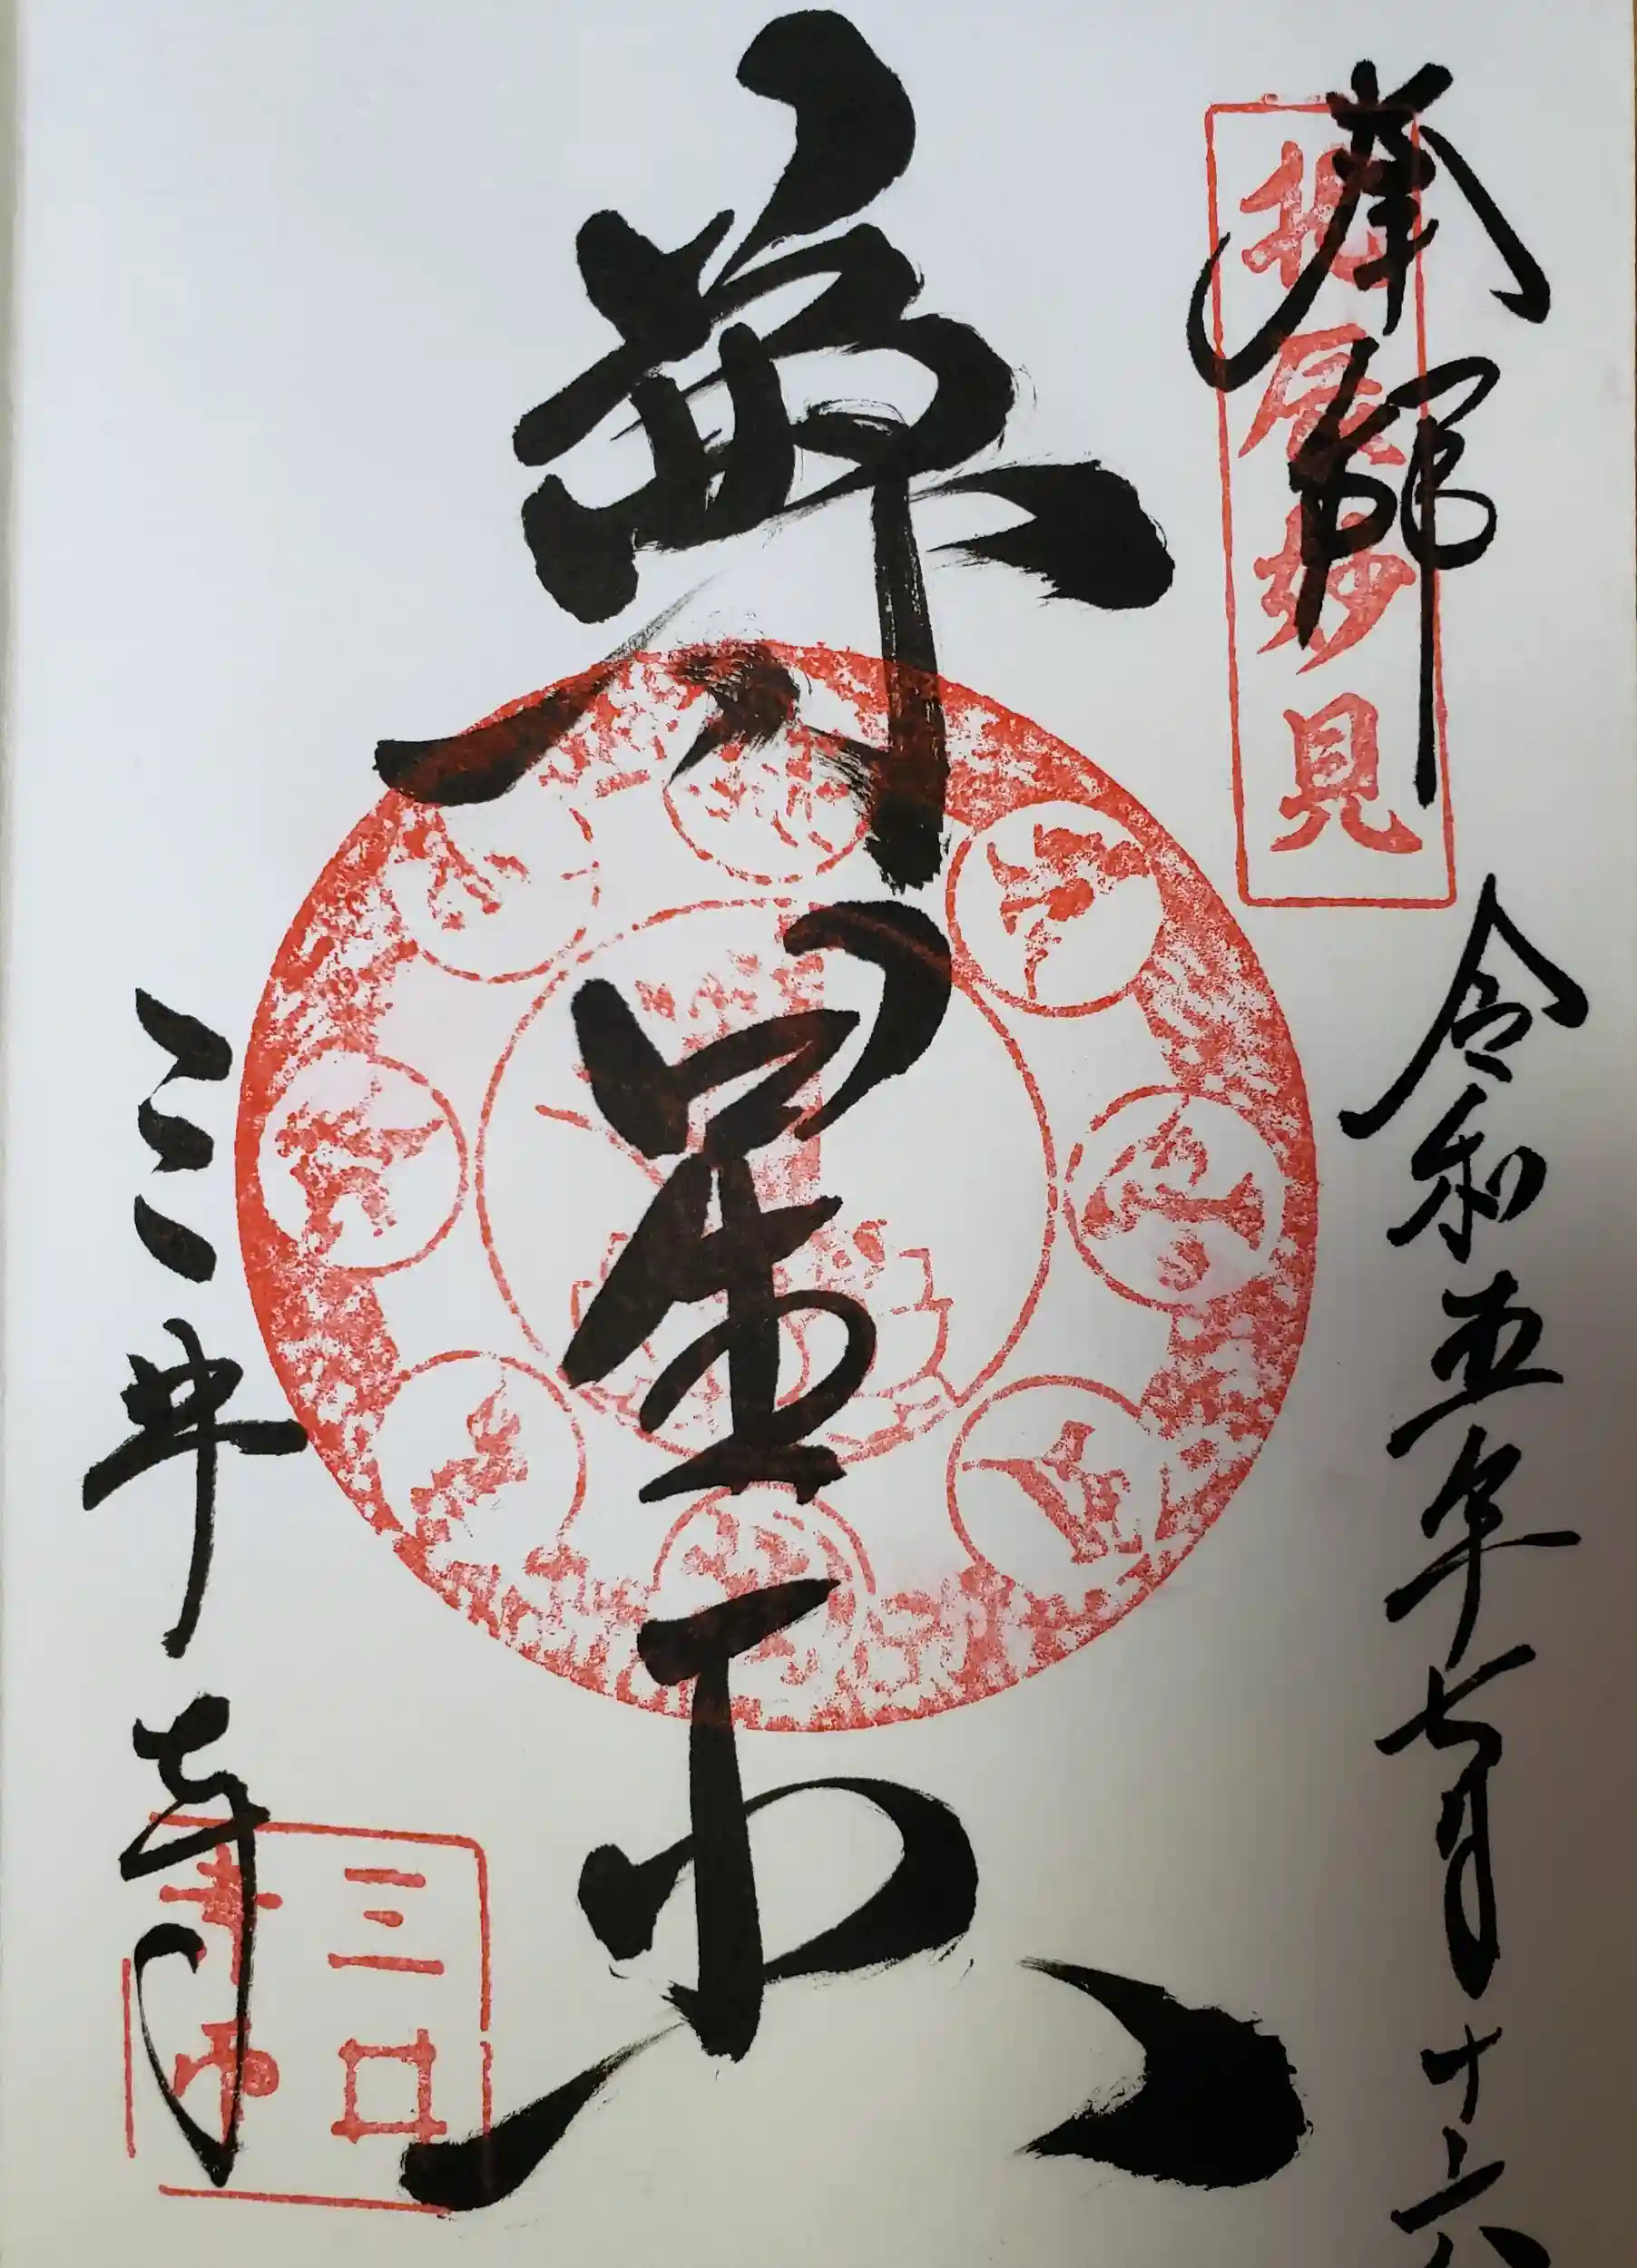 奉拝
北辰妙見
令和五年七月十六
尊星王
三井寺
三井
寺印